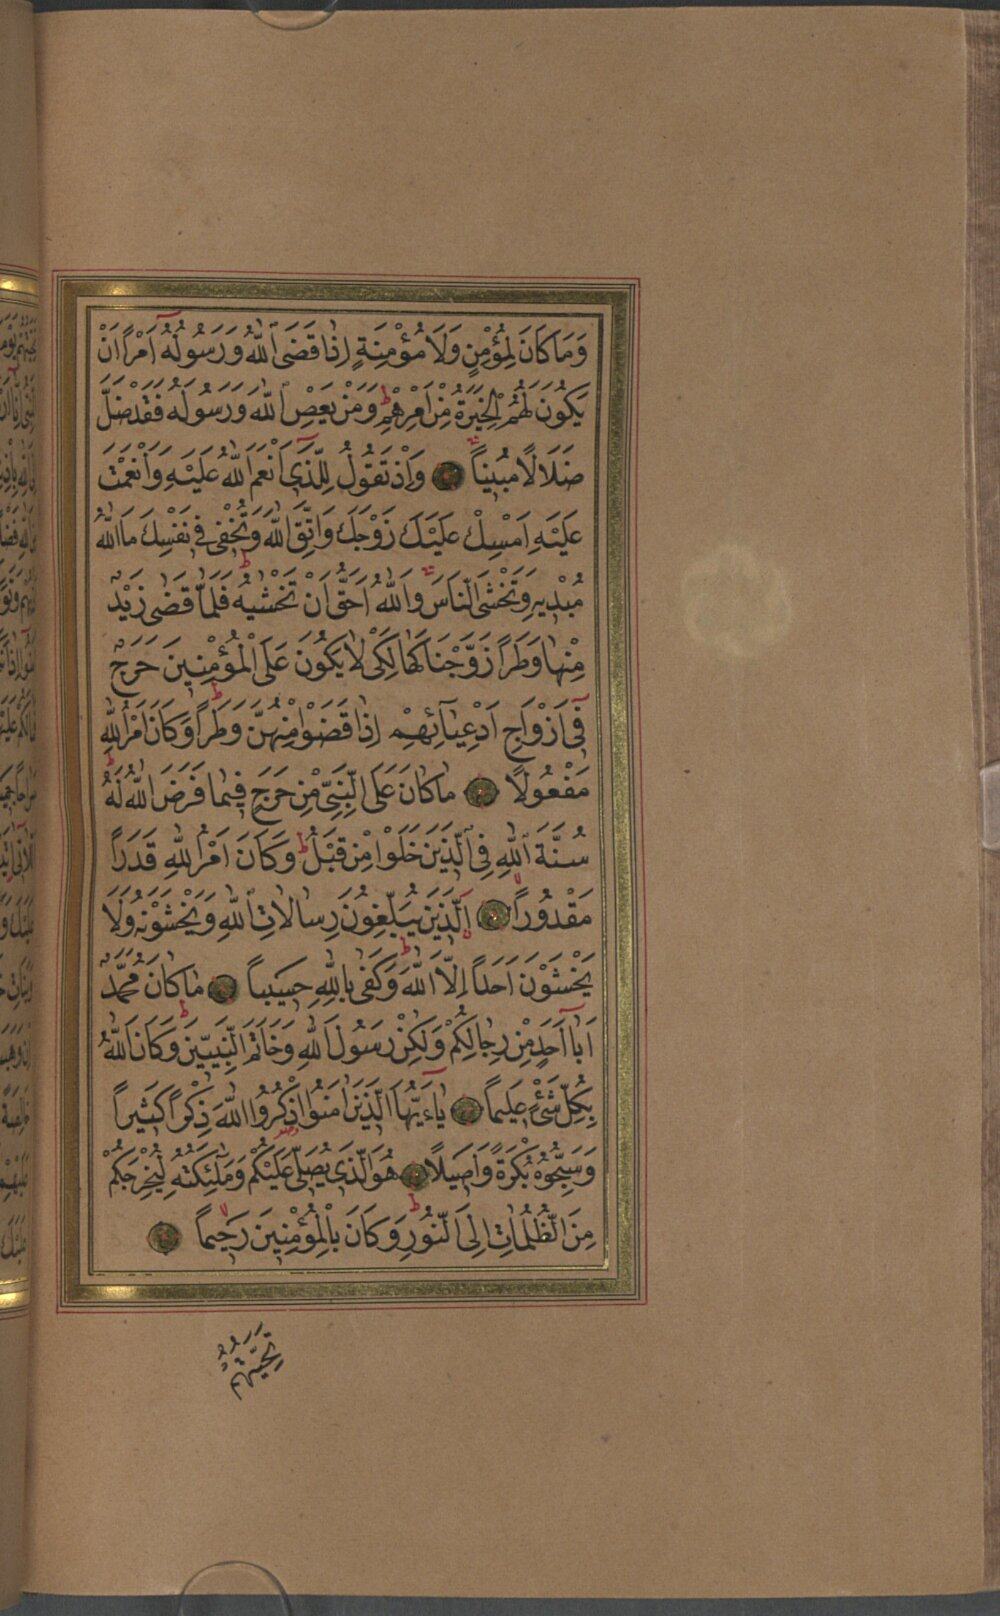 وَمَا كَانَ لِمُؤْمِنٍ وَلَا مُؤْمِنَةٍ اِذَا قَضَى اللّٰهُ وَرَسُولُهُ اَمْرًا اَنْ
يَكُونَ لَهُمُ الْخِيَرَةُ مِنْ اَمْرِهِمْ وَمَنْ يَعْصِ اللّٰهَ وَرَسُولَهُ فَقَدْ ضَلَّ
ضَلَالًا مُبِينًا وَاِذْ تَقُولُ لِلَّذِى اَنْعَمَ اللّٰهُ عَلَيْهِ وَاَنْعَمْتَ
عَلَيْهِ اَمْسِكْ عَلَيْكَ زَوْجَكَ وَاتَّقِ اللّٰهَ وَتُخْفِى فِى نَفْسِكَ مَا اللّٰهُ
مُبْدِيهِ وَتَخْشَى النَّاسَ وَاللّٰهُ اَحَقُّ اَنْ تَخْشٰيهُ فَلَمَّا قَضٰى زَيْدٌ
مِنْهَا وَطَرًا زَوَّجْنَاكَهَا لِكَىْ لَا يَكُونَ عَلَى الْمُؤْمِنِينَ حَرَجٌ
فِى اَزْوَاجِ اَدْعِيَائِهِمْ اِذَا قَضَوْا مِنْهُنَّ وَطَرًا وَكَانَ اَمْرُ اللّٰهِ
مَفْعُولًا مَا كَانَ عَلَى النَّبِىِّ مِنْ حَرَجٍ فِيمَا فَرَضَ اللّٰهُ لَهُ
سُنَّةَ اللّٰهِ فِى الَّذِينَ خَلَوْا مِنْ قَبْلُ وَكَانَ اَمْرُ اللّٰهِ قَدَرًا
مَقْدُورًا اَلَّذِينَ يُبَلِّغُونَ رِسَالَاتِ اللّٰهِ وَيَخْشَوْنَهُ وَلَا
يَخْشَوْنَ اَحَدًا اِلَّا اللّٰهَ وَكَفٰى بِاللّٰهِ حَسِيبًا مَا كَانَ مُحَمَّدٌ
اَبَا اَحَدٍ مِنْ رِجَالِكُمْ وَلٰكِنْ رَسُولَ اللّٰهِ وَخَاتَمَ النَّبِيِّينَ وَكَانَ اللّٰهُ
بِكُلِّ شَىْءٍ عَلِيمًا يَاءَيُّهَا الَّذِينَ اٰمَنُوا اذْكُرُوا اللّٰهَ ذِكْرًا كَثِيرًا
وَسَبِّحُوهُ بُكْرَةً وَاَصِيلًا هُوَ الَّذِى يُصَلِّى عَلَيْكُمْ وَمَلٰئِكَتُهُ لِيُخْرِجَكُمْ
مِنَ الظُّلُمَاتِ اِلَى النُّورِ وَكَانَ بِالْمُؤْمِنِينَ رَحِيمًا
تَحِيَّتُهُمْ